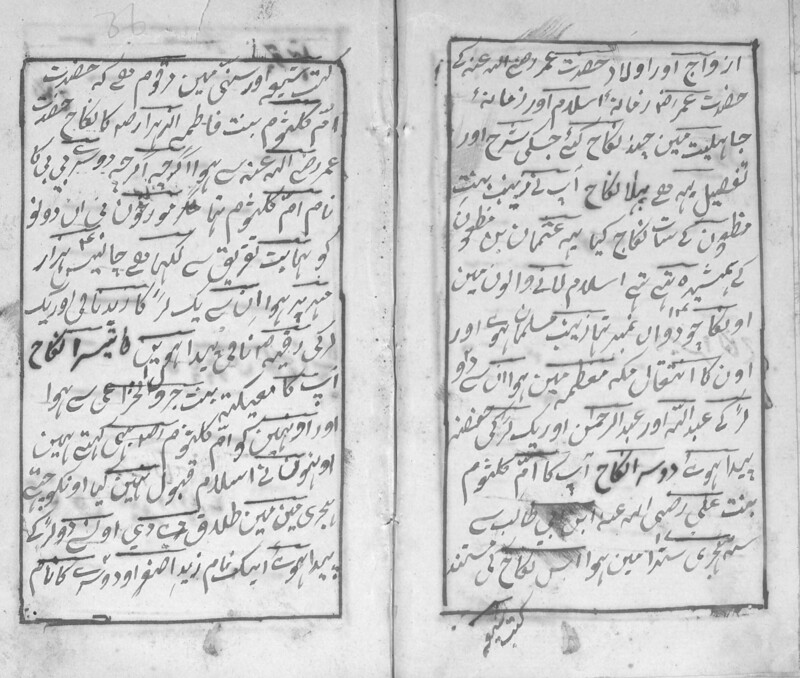 ازواج اور اولاد حضرت عمر رضے اللہ عنہ کے
حضرت عمر رضہ زمانۂ اسلام اور زمانۂ
جاہلیت مین چند نکاح کئے جسکی شرح اور
تفصیل یہہ ھے پہلا نکاح آپ نے زینب بنت
مظعون کے سات نکاح کیا یہہ عثمان بن مظعون
کے ہمشیرہ تہے اسلام لانے والون مین
اونکا چودواں نمبر تہا زینب مسلمان ہوے اور
اون کا انتقال مکہ معظمہ مین ہوا ان سے دو
لڑکے عبداللہ اور عبدالرحمٰن اور یک لڑکی حفضہ
پیدا ہوے دوسرا نکاح آپ کا امّ کلثوم
بنت علی رضی اللہ عنہ ابن ابی طالب سے
سنہ ہجری سترا مین ہوا اس نکاح کی مستند
کتب شیعہ
کتب شیعہ اور سنی مین مرقوم ھے کہ حضرت
امّ کلثوم بنت فاطمہ الزہرا رضہ کا نکاح حضرت
عمر رضے اللہ عنہ سے ہوا اگرچہ اگرچہ دوسرے بی بی کا
نام امّ کلثوم تہا مورخون نی ان دونو
کو نہایت تفریق سے لکہا ھے چالیس ہزار
مہر پر ہوا ان سے یک لڑکا زید نامی اور یک
لڑکی رقیہ نامی پیدا ہویں تیسرا نکاح
آپ کا ملیکہ بنت جرول الخزاعی سے ہوا
اور اونہین کو امّ کلثوم بھی کہتے ہین
اونہون نے اسلام قبول نہین کیا اونکو چہٹے
ہجری مین مین طلاق دے دی اونسے دو لڑکے
پیدا ہوے ایک نام زید اصغر اور دوسرے کا نام